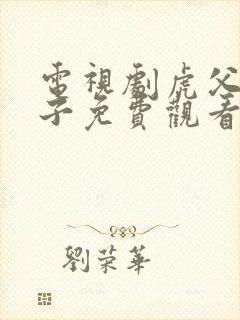 電視劇虎父
子免費觀看
劉榮華